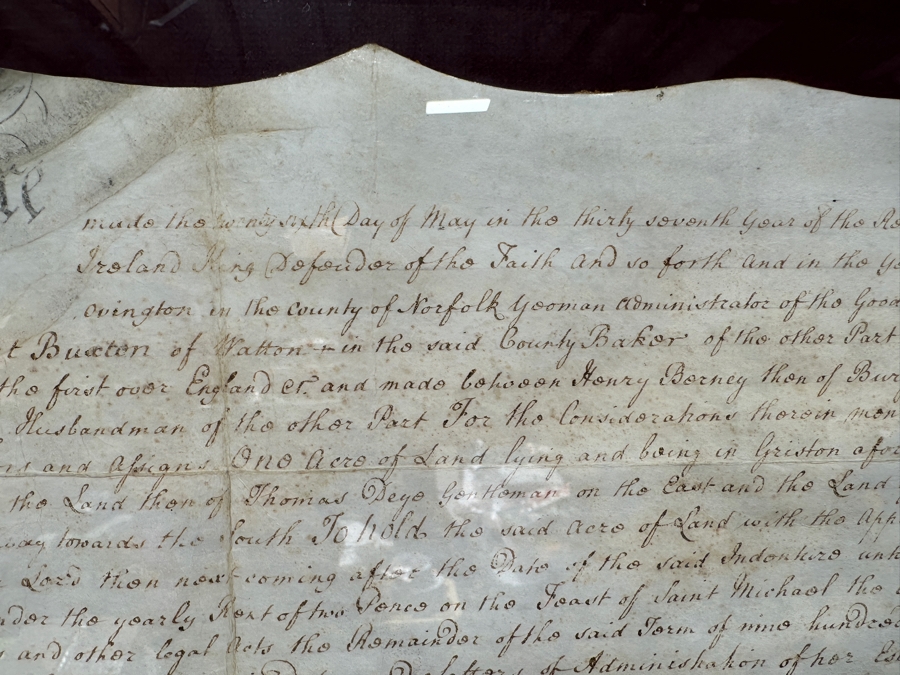 made the twenty sixth Day of May in the thirty seventh Year of the Re
Ireland King Defender of the Faith and so forth and in the Ye
ovington in the County of Norfolk Yeoman Administrator of the Good
t Buxton of Watton in the said County Baker of the other Part
the first over England &c. and made between Henry Berney then of Bur
Husbandman of the other Part For the Considerations therein men
ors and Assigns One Acre of Land lying and being in Griston afor
the Land then of Thomas Deye Gentleman on the East and the Land
way towards the South To hold the said Acre of Land with the App
Lord then next coming after the Date of the said Indenture unt
nder the yearly Rent of two Pence on the Feast of Saint Michael the
s and other legal Acts the Remainder of the said Term of nine hundred
Letters of Administration of her Es